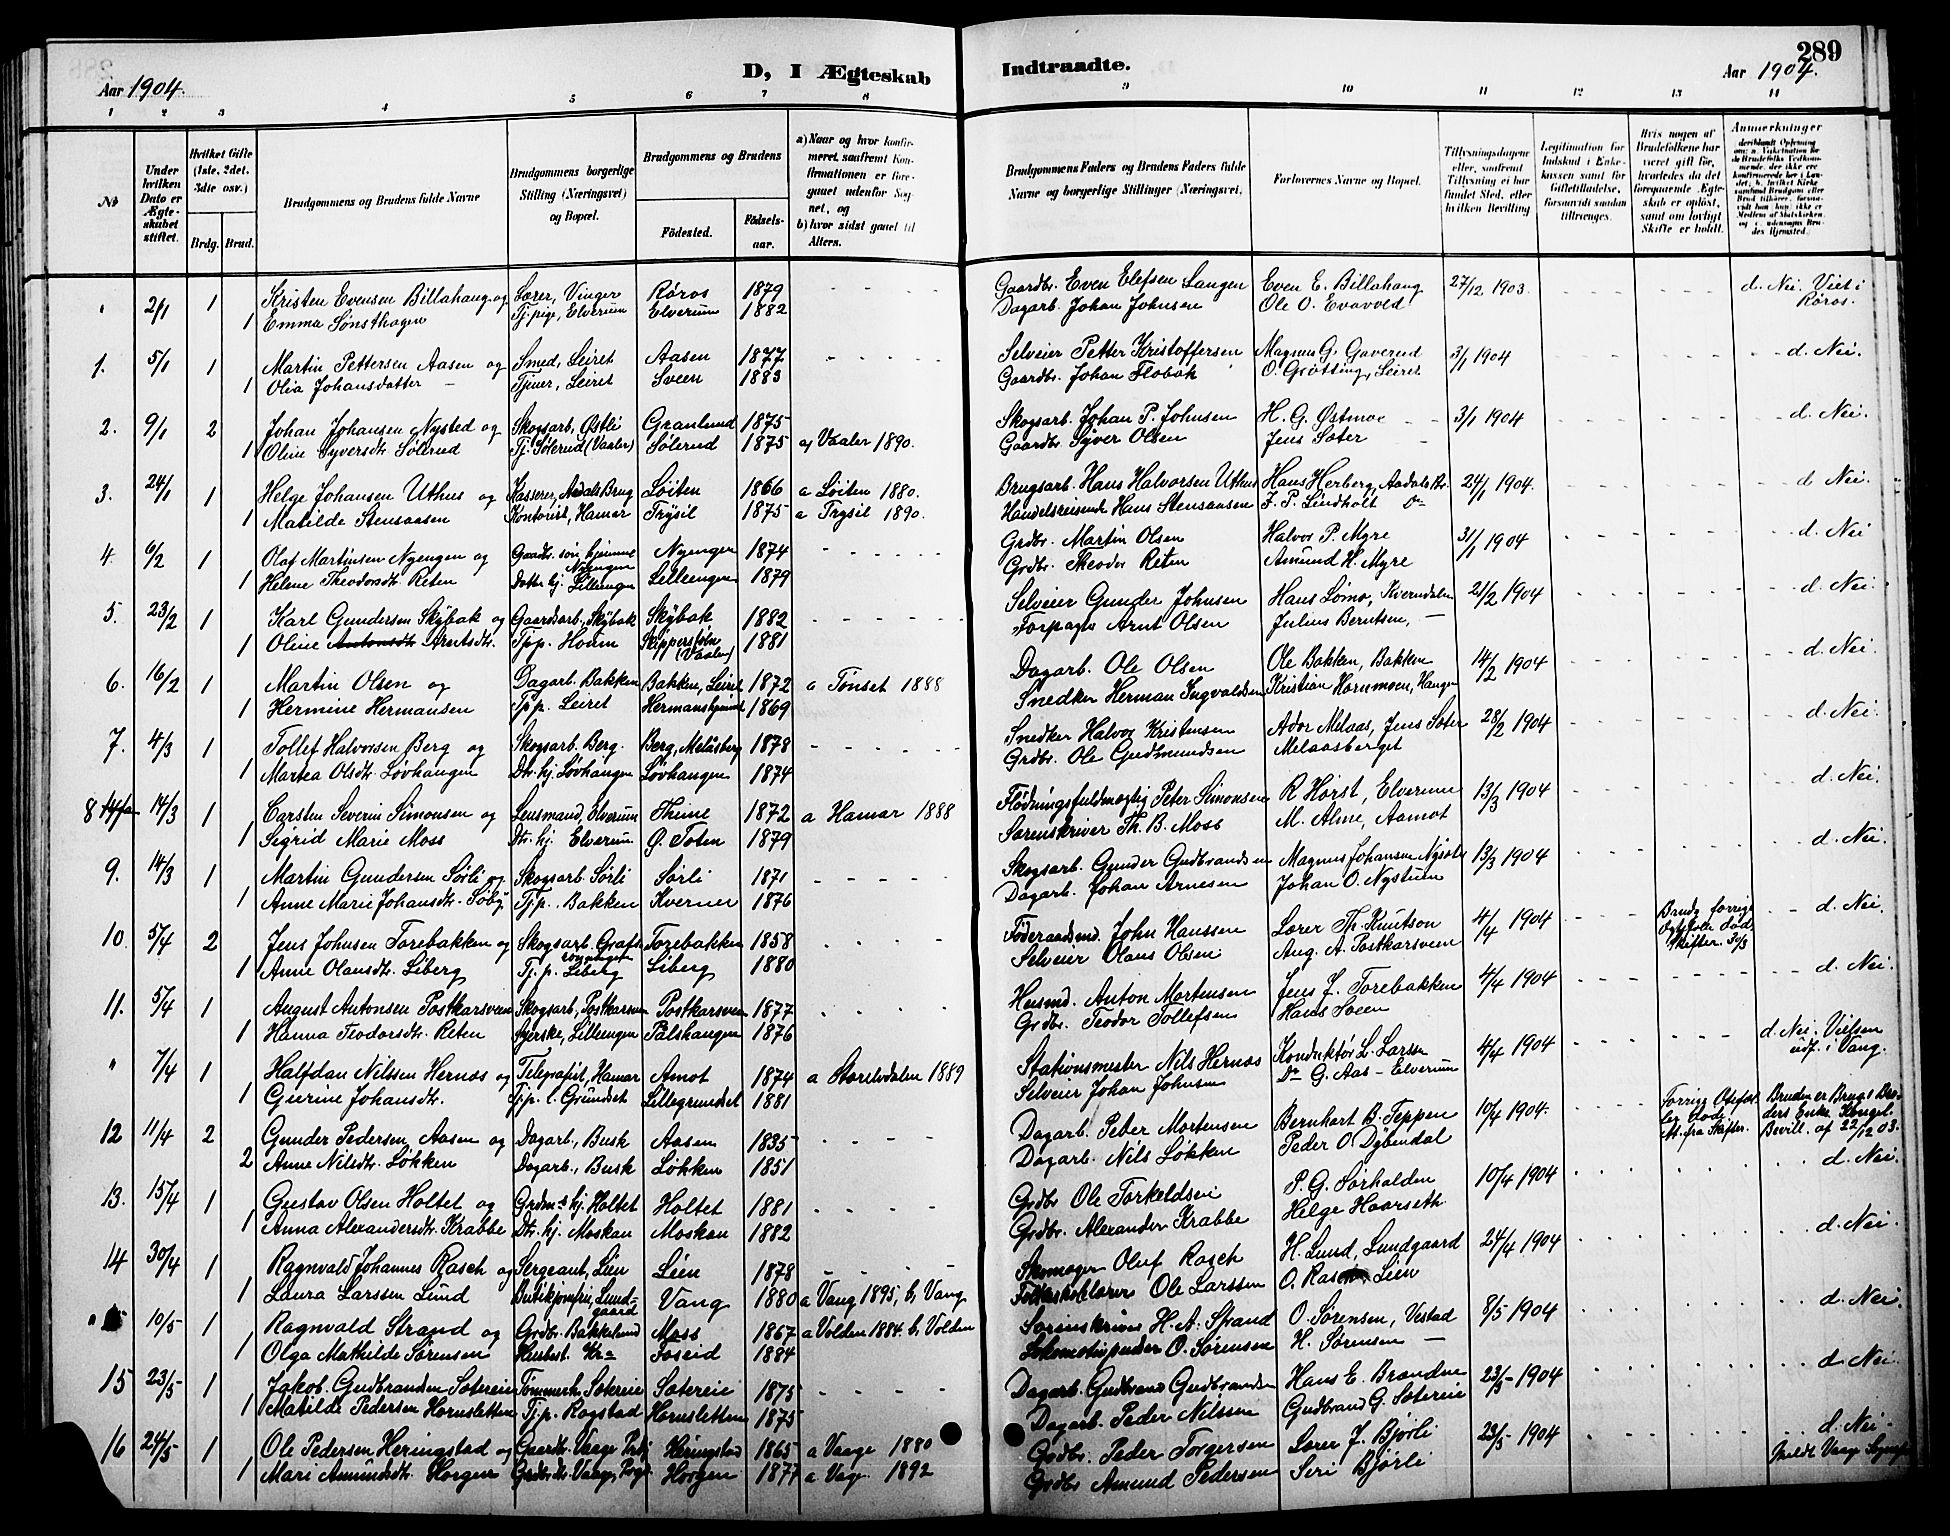 289
Aar 1904.
D, I Ægteskab
Indtraadte.
Aar 1904.
1 2 3 4 5 6 7 8
9 10 11 12 13 14
№
Under hvilken Dato er Ægteskabet stiftet.
Hvilket Gifte (1ste, 2det, 3die osv.)
Brdg. Brud.
Brudgommens og Brudens fulde Navne
Brudgommens borgerlige Stilling (Næringsvei) og Bopæl.
Brudgommens og Brudens
Födested.
Födselsaar.
a) Naar og hvor konfirmeret, saafremt Konfirmationen er foregaaet udenfor Sognet, og
b) hvor sidst gaaet til Alters.
Brudgommens Faders og Brudens Faders fulde Navne og borgerlige Stillinger (Næringsvei).
Forlovernes Navne og Bopæl.
Tillysningsdagene eller, saafremt Tillysning ei har fundet Sted, efter hvilken Bevilling
Legitimation for Indskud i Enkekassen samt for Giftetilladelse, forsaavidt saadan tiltrænges.
Hvis nogen af Brudefolkene har været gift för, hvorledes da det foregaaende Ægteskab er oplöst, samt om lovligt Skifte er holdt.
Anmerkninger
" 2/1 1 Kristen Evensen Billahaug og Lærer, Vinger Røros 1879 - - - - Gaardbr. Even Elefsen Langen Even E. Billahaug 27/12 1903. d. Nei. Viet i
1 Emma Sønsthagen Tj.pige, Elverum Elverum 1882 Dagarb. Johan Johnsen Ole O. Evavold Röros.
1. 5/1 1 Martin Pettersen Aasen og Smed, Leiret Aasen 1877 - - - - Selveier Petter Kristoffersen Magnus G. Gaverud 3/1 1904 d. Nei.
1 Olia Johansdatter - Tjener, Leiret Sveen 1883 Gaardbr. Johan Flobak O. Grøtting, Leiret
2. 9/1 2 Johan Johansen Nysted og Skogsarb. Østli Granlund 1875 Skogsarb. Johan P. Johnsen H. G. Østmoe 3/1 1904 d. Nei.
1 Oline Syversdtr. Sölerud Tj. Sölerud (Vaaler) Sölerud 1875 a) Vaaler 1890. Gaardbr. Syver Olsen Jens Sæter
3. 24/1 1 Helge Johansen Uthus og Kasserer, Aadals Brug Löiten 1866 a Löiten 1880. Brugsarb. Hans Halvorsen Uthus Hans Herberg, Aadalsbr. 24/1 1904. d. Nei.
1 Matilde Stensaasen Kontorist, Hamar Trysil 1875 a Trysil 1890. Handelsreisende Hans Stensaasen F. P. Lindholt Do
4. 6/2 1 Olaf Martinsen Nyengen og Gaardbr. søn hjemme Nyengen Nyengen 1874 - - - - Grdbr. Martin Olsen Halvor P. Myre 31/1 1904 d. Nei
1 Helene Theodorsdtr. Reten Datter hj. Lilleengen Lilleengen 1879 Grdbr. Theodor Reten Amund H. Myre
5. 23/2 1 Karl Gundersen Skÿbak og Gaardsarb., Skÿbak Skÿbak 1882 - - - - Selveier Gunder Johnsen Hans Lømo, Kverndalen 21/2 1904 d. Nei.
1 Oline Antonsdtr. Arntsdtr. Tj.p. Hovem 1881 Arnt Olsen Julius Berntsen, -
6. 16/2 1 Martin Olsen og Dagarb. Bakken Bakken, Leiret 1872 a Tönset 1888 Dagarb. Ole Olsen Ole Bakken, Bakken 14/2 1904 d. Nei.
1 Hermine Hermansen Tj.p. Leiret 1869 Snedker Herman Ingvaldsen Kristian Hornmoen, Haugen
7. 4/3 1 Tollef Halvorsen Berg og Skogsarb. Berg. Berg, Melåsberg 1878 - - - - Snedker Halvor Kristensen Ador Melaas, Jens Sæter 28/2 1904 d. Nei.
1 Martea Olsdtr. Løvhaugen Dtr. hj. Løvhaugen Løvhaugen 1874 Grdbr. Ole Gudmundsen Melaasberget
8 14/3 1 Carsten Severin Simonsen og Lensmand, Elverum Thime 1872 a Hamar 1888 Flødningsfuldmægtig Peter Simonsen R. Hörst, Elverum 13/3 1904 d. Nei.
1 Sigrid Marie Moss Dtr. hj. Elverum Ø. Toten 1879 Sorenskriver Th. B. Moss M. Alme, Aamot
9. 14/3 1 Martin Gundersen Sørli og Skogsarb. Sørli Sørli 1871 - - - - Skogsarb. Gunder Gudbrandsen Magnus Johansen 13/3 1904 d. Nei.
1 Anne Marie Johansdtr. Söby Tj.p. Bakken Kverner 1876 Dagarb. Johan Arnesen Johan O. Nystuen
10. 5/4 2 Jens Johnsen Torebakken og Skogsarb. Torebakken 1858 - - - - Föderaadsmd. John Hanssen Lærer Th. Knutson 4/4 1904 Brudg. forrige Egtefelle död, Skifter. 30/3 d. Nei.
1 Anne Olausdtr. Liberg Tj.p. Liberg Liberg 1880 Selveier Olaus Olsen Aug. A. Postkarsveen
11. 5/4 1 August Antonsen Postkarsveen Skogsarb., Postkarsveen Postkarsveen 1877 - - - - Husmd. Anton Mortensen Jens J. Torebakken 4/4 1904 d. Nei.
1 Hanna Teodorsdtr. Reten Syerske, Lilleengen Pålshaugen 1876 Grdbr. Teodor Tollefsen Hans Soen
" 7/4 1 Halfdan Nilssen Hernæs og Telegrafist, Hamar Åmot 1874 a Storelvdalen 1889 Stationsmester Nils Hernæs Konduktør L. Larsen 4/4 1904 d. Nei. Vielsen
1 Gurine Johansdtr. Tj.p. l. Grundset Lillegrundset 1881 Selveier Johan Johnsen Do G. Aas - Elverum udf. i Vang.
12 11/4 2 Gunder Pedersen Aasen og Dagarb., Busk Aasen 1835 - - - - Dagarb. Peder Mortensen Bernhart B. Teppen 10/4 1904. Bruden er Brugs Broders Enke. Kongel. Bevill. af 22/12 03.
2 Anne Nilsdtr. Løkken Dagarb., Busk Løkken 1851 Dagarb. Nils Løkken Peder O. Dybendal d. Nei.
13. 15/4 1 Gustav Olsen Holtet og Grdms. hj. Holtet Holtet 1881 - - - - Grdbr Ole Torkeldsen P. G. Sørhalden 10/4 1904
1 Anna Alexandersdtr. Krabbe Dtr. hj. Moskau Moskau 1882 Grdbr. Alexander Krabbe Helge Haarseth d. Nei.
14 30/4 1 Ragnvald Johannes Rasch og Sergeant, Lien Lien 1878 - - - - Skomager Oluf Rasch H. Lund, Lundgaard 24/4 1904
1 Laura Larssen Lund Butikjomfru, Lundgaard Vang 1880 a Vang 1895, b, Vang Folkeskolelærer Ole Larssen O. Rasch, Lien d. Nei.
" 10/5 1 Ragnvald Strand og Grdbr. Bakkelund Moss 1867 a Volden 1884. b, Volden Sorenskriver H. A. Strand O. Sørensen, Vestad 8/5 1904
1 Olga Mathilde Sørensen Husbest. Kra 1884 Lokomotivpudser O. Sørensen H. Sørensen - d. Nei.
15 23/5 1 Jakob Gudbrandsen Sætereie Tömmerh., Sætereie Sætereie 1875 - - - - Dagarb. Gudbrand Gudbrandsen Hans E. Brænden 23/5 1904
1 Matilde Pedersen Hornsletten Tj.p. Rogstad Hornsletten 1875 Dagarb. Peder Nilssen Gudbrand G. Sætereie d. Nei
16 24/5 1 Ole Pedersen Heringstad og Gaardbr. Vaage Prgj Heringstad 1865 a Vaage 1880 Grdbr. Peder Torgersen Lærer J. Bjørli 23/5 1904
1 Mari Amundsdtr. Horgen Grdbr.dtr. Vaage, Prgj. Horgen 1877 a Vage 1892 Grdbr Amund Pedersen Seri Bjørli